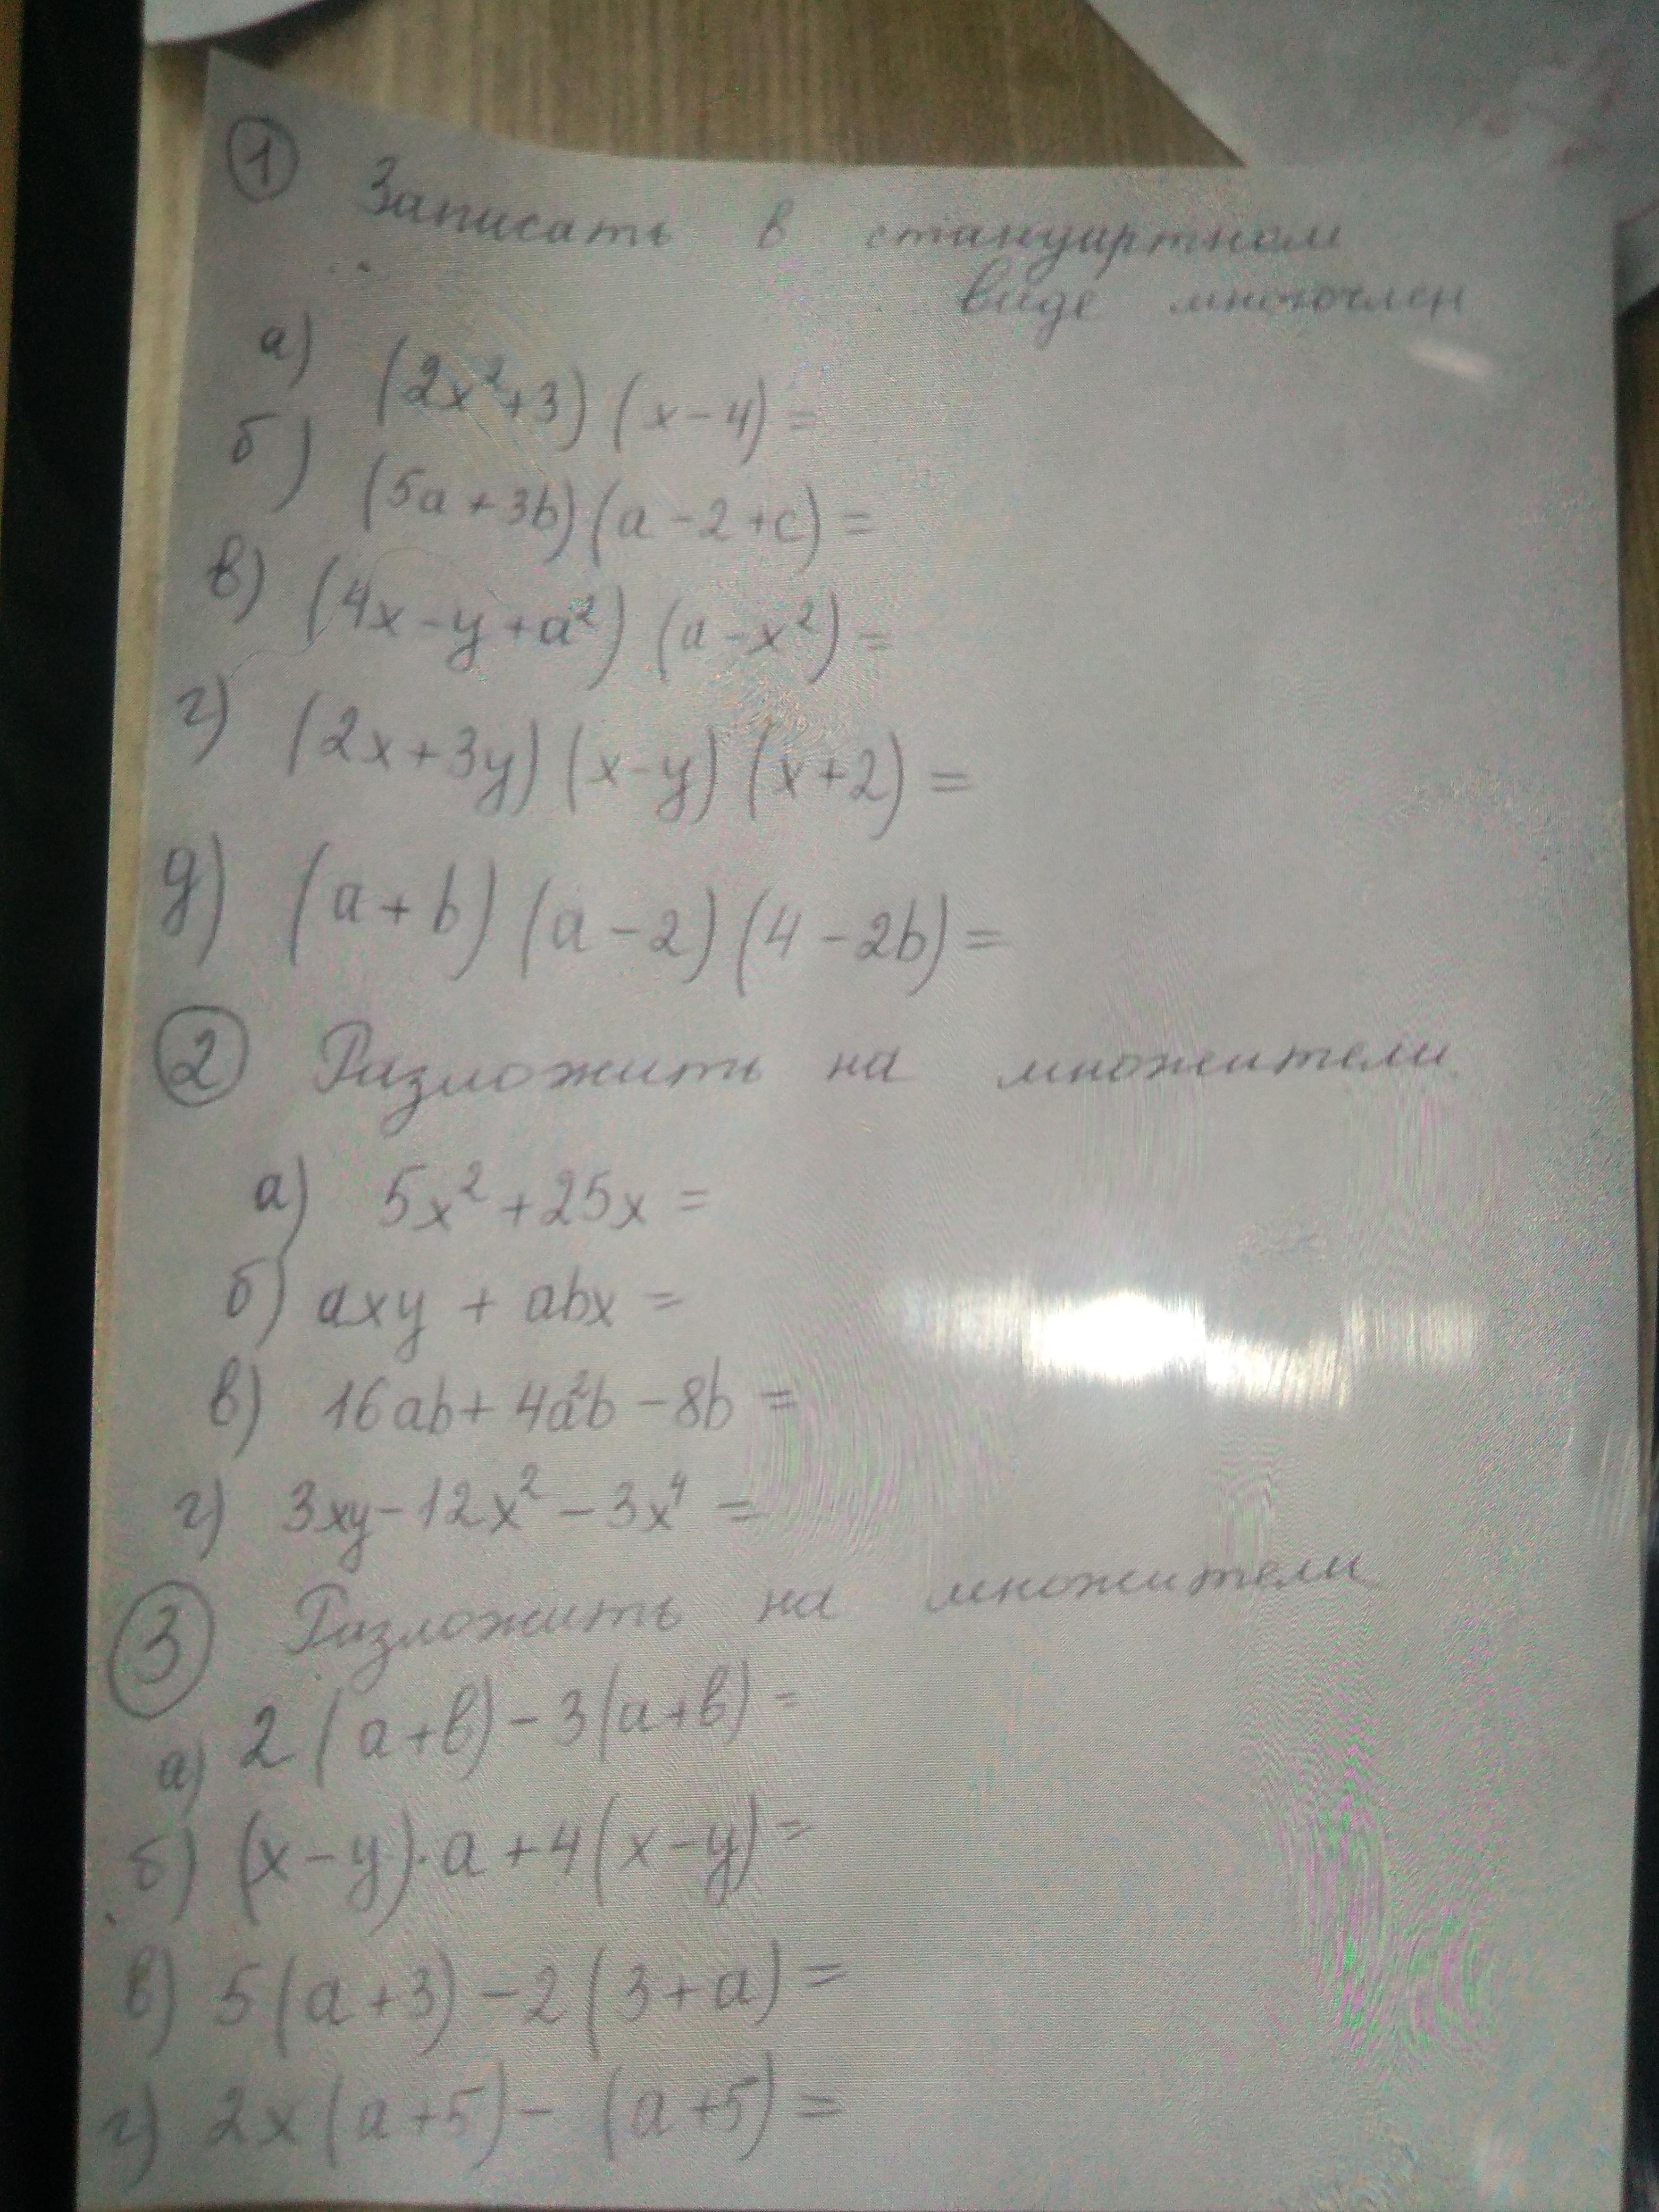 1 Записать в стандартном
виде многочлен
а) (2x²+3)(x-4)=
б) (5a+3b)(a-2+c)=
в) (4x-y+a²)(a-x²)=
г) (2x+3y)(x-y)(x+2)=
д) (a+b)(a-2)(4-2b)=
2 Разложить на множители.
а) 5x²+25x=
б) axy + abx =
в) 16ab+4a²b-8b=
г) 3xy-12x²-3x⁴=
3 Разложить на множители
а) 2(a+в)-3(a+в)=
б) (x-y)·a+4(x-y)=
в) 5(a+3)-2(3+a)=
г) 2x(a+5)-(a+5)=